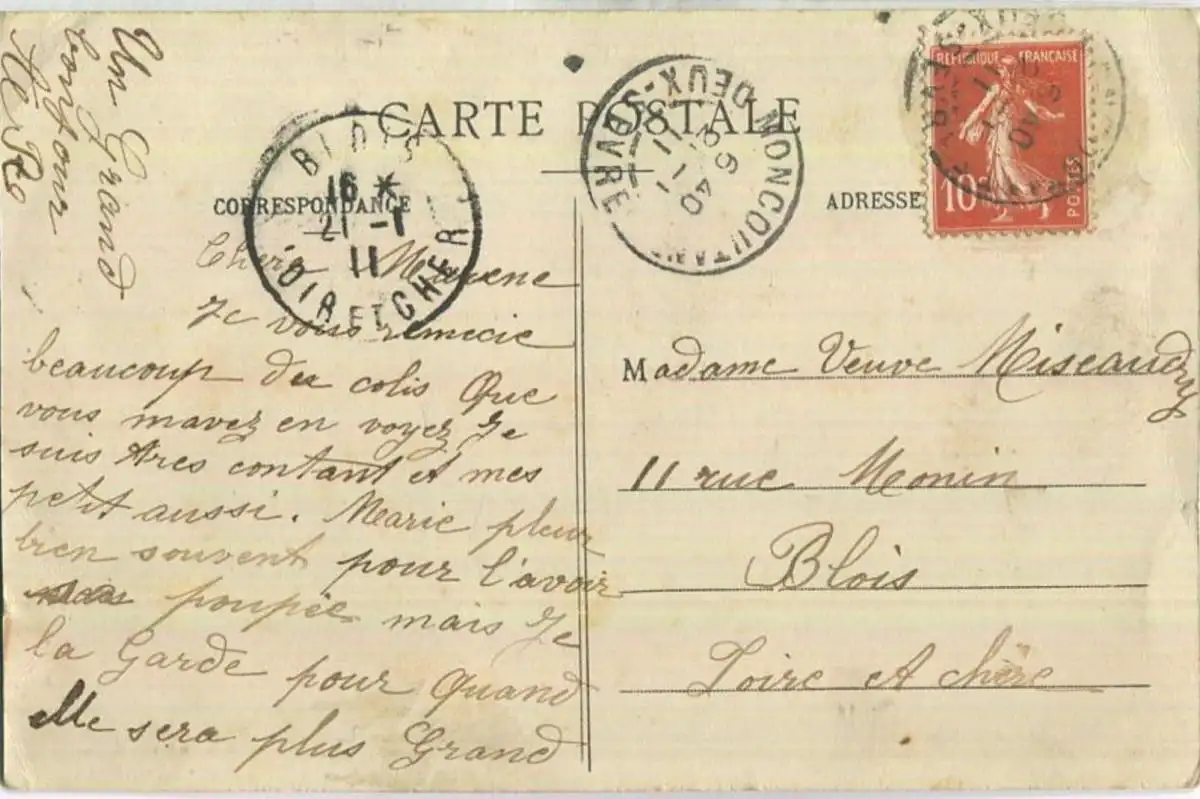 Un Grand
bonjour
CARTE POSTALE
CORRESPONDANCE
ADRESSE
BLOIS
16 *
21 - 1
11
LOIR ET CHER
MONCOUTANT
DEUX-SÈVRES
RÉPUBLIQUE FRANÇAISE
10
POSTES
Chère
Je vous remecie
beaucoup du colis que
vous mavez en voyez Je
suis tres contant et mes
petit aussi. Marie pleur
bien souvent pour l'avoir
poupée mais Je
la Garde pour Quand
elle sera plus Grand
Madame Veuve Miseaudy
11 rue Monin
Blois
Loire et chère